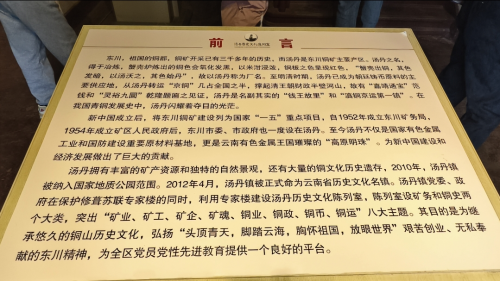 前言
东川，祖国的铜都，铜矿开采已有三千多年的历史，而汤丹是东川铜矿主要产区。汤丹之名，
得于冶炼，蟹壳炉炼出的铜色会氧化发黑，以米泔浸泼，铜板之色呈现红色，“蟹壳出铜，其色
发楡，以汤沃之，其色始丹”，故以汤丹称为厂名。至明清时期，汤丹已成为朝廷铸币原料的主
要供应地，从汤丹转运“京铜”几占全国之半，撑起清王朝财政半壁河山，故有“嘉靖通宝”范
钱和“灵裕九圜”乾隆额匾之见证，汤丹是名副其实的“钱王故里”和“滇铜京运第一镇”。在
我国青铜发展史中，汤丹闪耀着夺目的光芒。
新中国成立后，将东川铜矿建设列为国家“一五”重点项目，自1952年成立东川矿务局，
1954年成立矿区人民政府后，东川市委、市政府也一度设在汤丹。至今汤丹不仅是国家有色金属
工业和国防建设重要原材料基地，更是云南有色金属王国璀璨的“高原明珠”。为新中国建设和
经济发展做出了巨大的贡献。
汤丹拥有丰富的矿产资源和独特的自然景观，还有大量的铜文化历史遗存，2010年，汤丹镇
被纳入国家地质公园范围。2012年4月，汤丹镇被正式命为云南省历史文化名镇。汤丹镇党委、政
府在保护修葺苏联专家楼的同时，利用专家楼建设汤丹历史文化陈列室，陈列室设矿务和铜史两
个大类，突出“矿业、矿工、矿企、矿魂、铜业、铜政、铜币、铜运”八大主题。其目的是为继
承悠久的铜山历史文化，弘扬“头顶青天，脚踏云海，胸怀祖国，放眼世界”艰苦创业、无私奉
献的东川精神，为全区党员党性先进教育提供一个良好的平台。